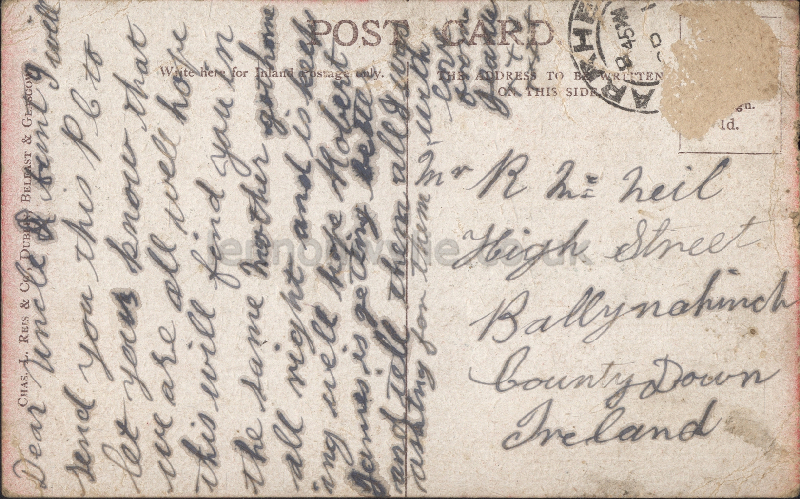 POST CARD
Write here for Inland Postage only.
THE ADDRESS TO BE WRITTEN
ON THIS SIDE
CHAS. L. REIS & CO., DUBLIN, BELFAST & GLASGOW
45 PM
Dear Uncle & Aunt I will
send you this P C to
let you know that
we are all well hope
this will find you in
the same mother got home
all right and is keep
ing well hope Robert
James is getting better
and tell them all I was
asking for them with
love
from
Jeanie
x x x
Mr R Mc Neil
High Street
Ballynahinch
County Down
Ireland